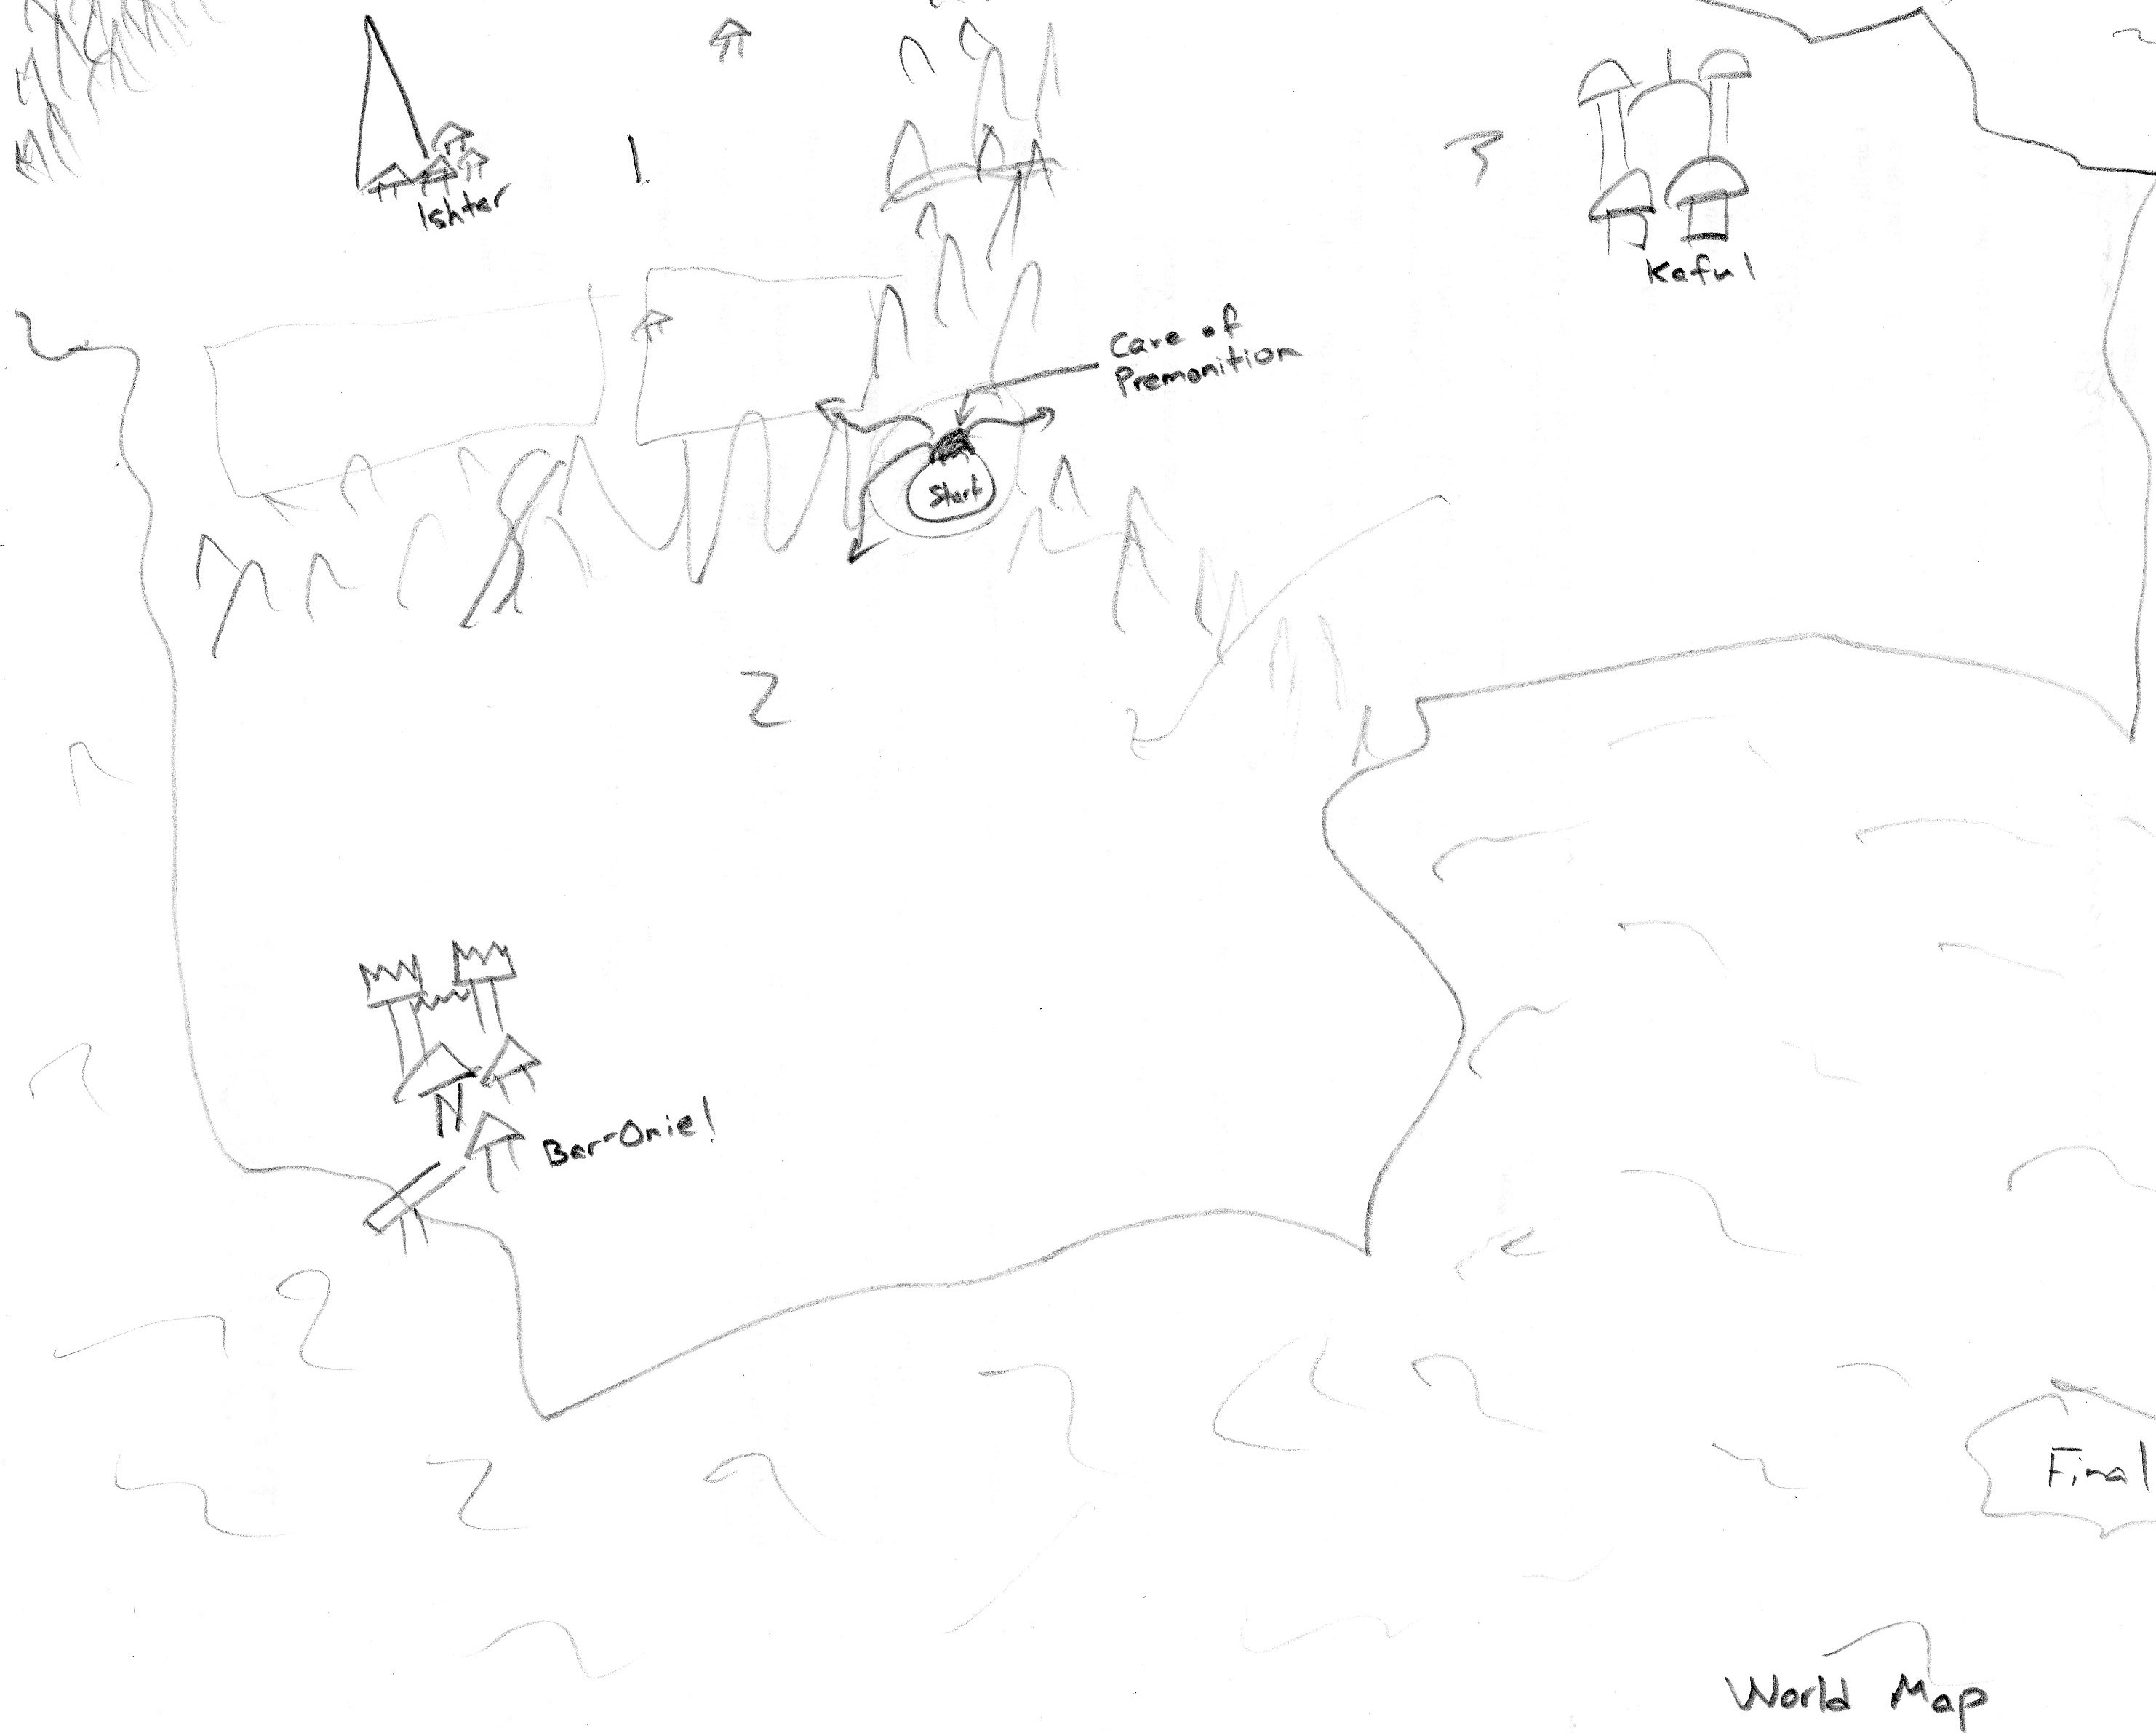 Ishtar
1
3
Kaful
Cave of
Premonition
Start
2
Bar-Oniel
Final
World Map